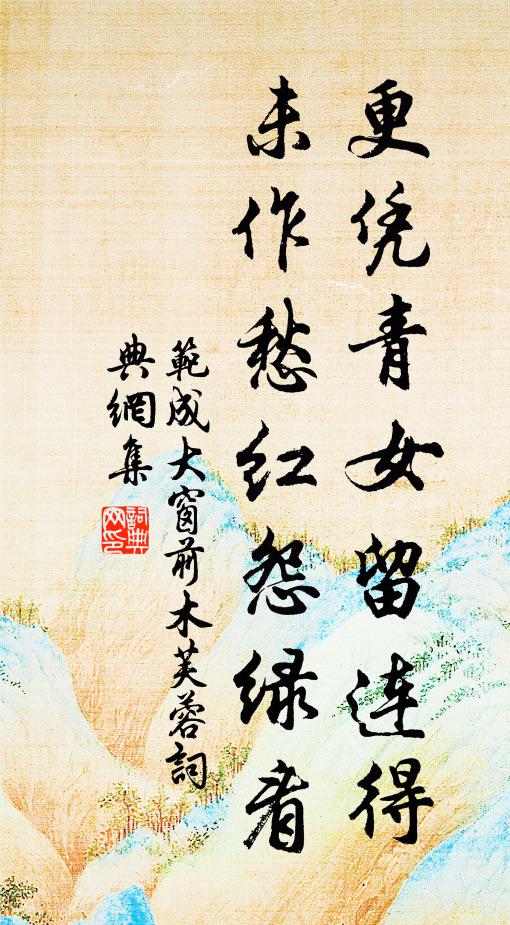 更凭青女留连得
未作愁红怨绿看
範成大窗前木芙蓉詞
典網集
詞典网印